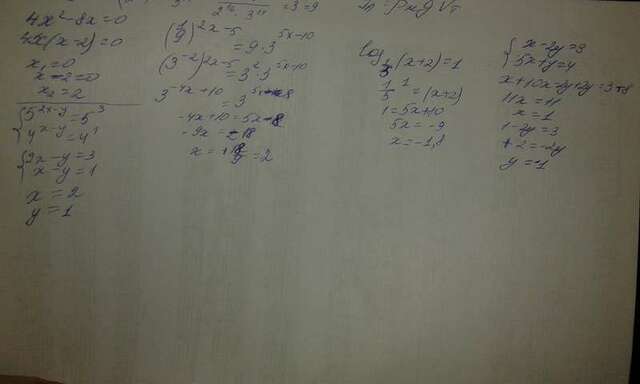 4x² - 8x = 0
4x(x-2) = 0
x₁ = 0
x - 2 = 0
x₂ = 2
{ 5^(2x-y) = 5^3
{ 4^(x-y) = 4^1
{ 2x - y = 3
{ x - y = 1
x = 2
y = 1
= 3 = 9
(1/9)^(2x-5) = 9·3^(5x-10)
(3^-2)^(2x-5) = 3^2·3^(5x-10)
3^(-4x+10) = 3^(5x-8)
-4x+10 = 5x-8
-9x = -18
x = 2
log 1/5 (x+2) = 1
1/5^1 = (x+2)
1 = 5x+10
5x = -9
x = -1,8
{ x - 2y = 3
{ 5x + y = 4
x + 10x - 2y + 2y = 3+8
11x = 11
x = 1
1 - 2y = 3
+2 = -2y
y = -1